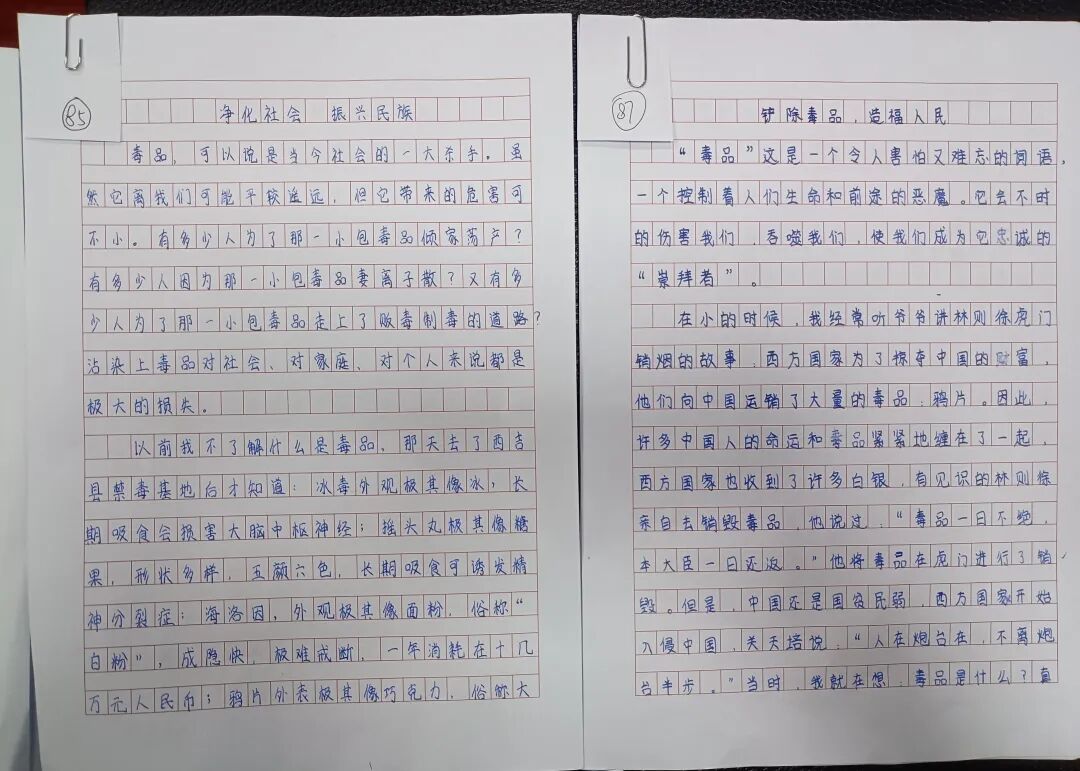 85
净化社会 振兴民族
毒品，可以说是当今社会的一大杀手。虽
然它离我们可能平较遥远，但它带来的危害可
不小。有多少人为了那一小包毒品倾家荡产？
有多少人因为那一小包毒品妻离子散？又有多
少人为了那一小包毒品走上了贩毒制毒的道路？
沾染上毒品对社会、对家庭、对个人来说都是
极大的损失。
以前我不了解什么是毒品，那天去了西吉
县禁毒基地后才知道：冰毒外观极其像冰，长
期吸食会损害大脑中枢神经；摇头丸极其像糖
果，形状多样，五颜六色，长期吸食可诱发精
神分裂症；海洛因，外观极其像面粉，俗称“
白粉”，成隐快，极难戒断，一年消耗在十几
万元人民币；鸦片外表极其像巧克力，俗称大
87
铲除毒品，造福人民
“毒品”这是一个令人害怕又难忘的词语，
一个控制着人们生命和前途的恶魔。它会不时
的伤害我们，吞噬我们，使我们成为它忠诚的
“崇拜者”。
在小的时候，我经常听爷爷讲林则徐虎门
销烟的故事，西方国家为了掠夺中国的财富，
他们向中国运销了大量的毒品：鸦片。因此，
许多中国人的命运和毒品紧紧地缠在了一起，
西方国家也收到了许多白银，有见识的林则徐
亲自去销毁毒品，他说过：“毒品一日不绝，
本大臣一日还返。”他将毒品在虎门进行了销
毁。但是，中国还是国贫民弱，西方国家开始
入侵中国，关天培说：“人在炮台在，不离炮
台半步。”当时，我就在想：毒品是什么？真